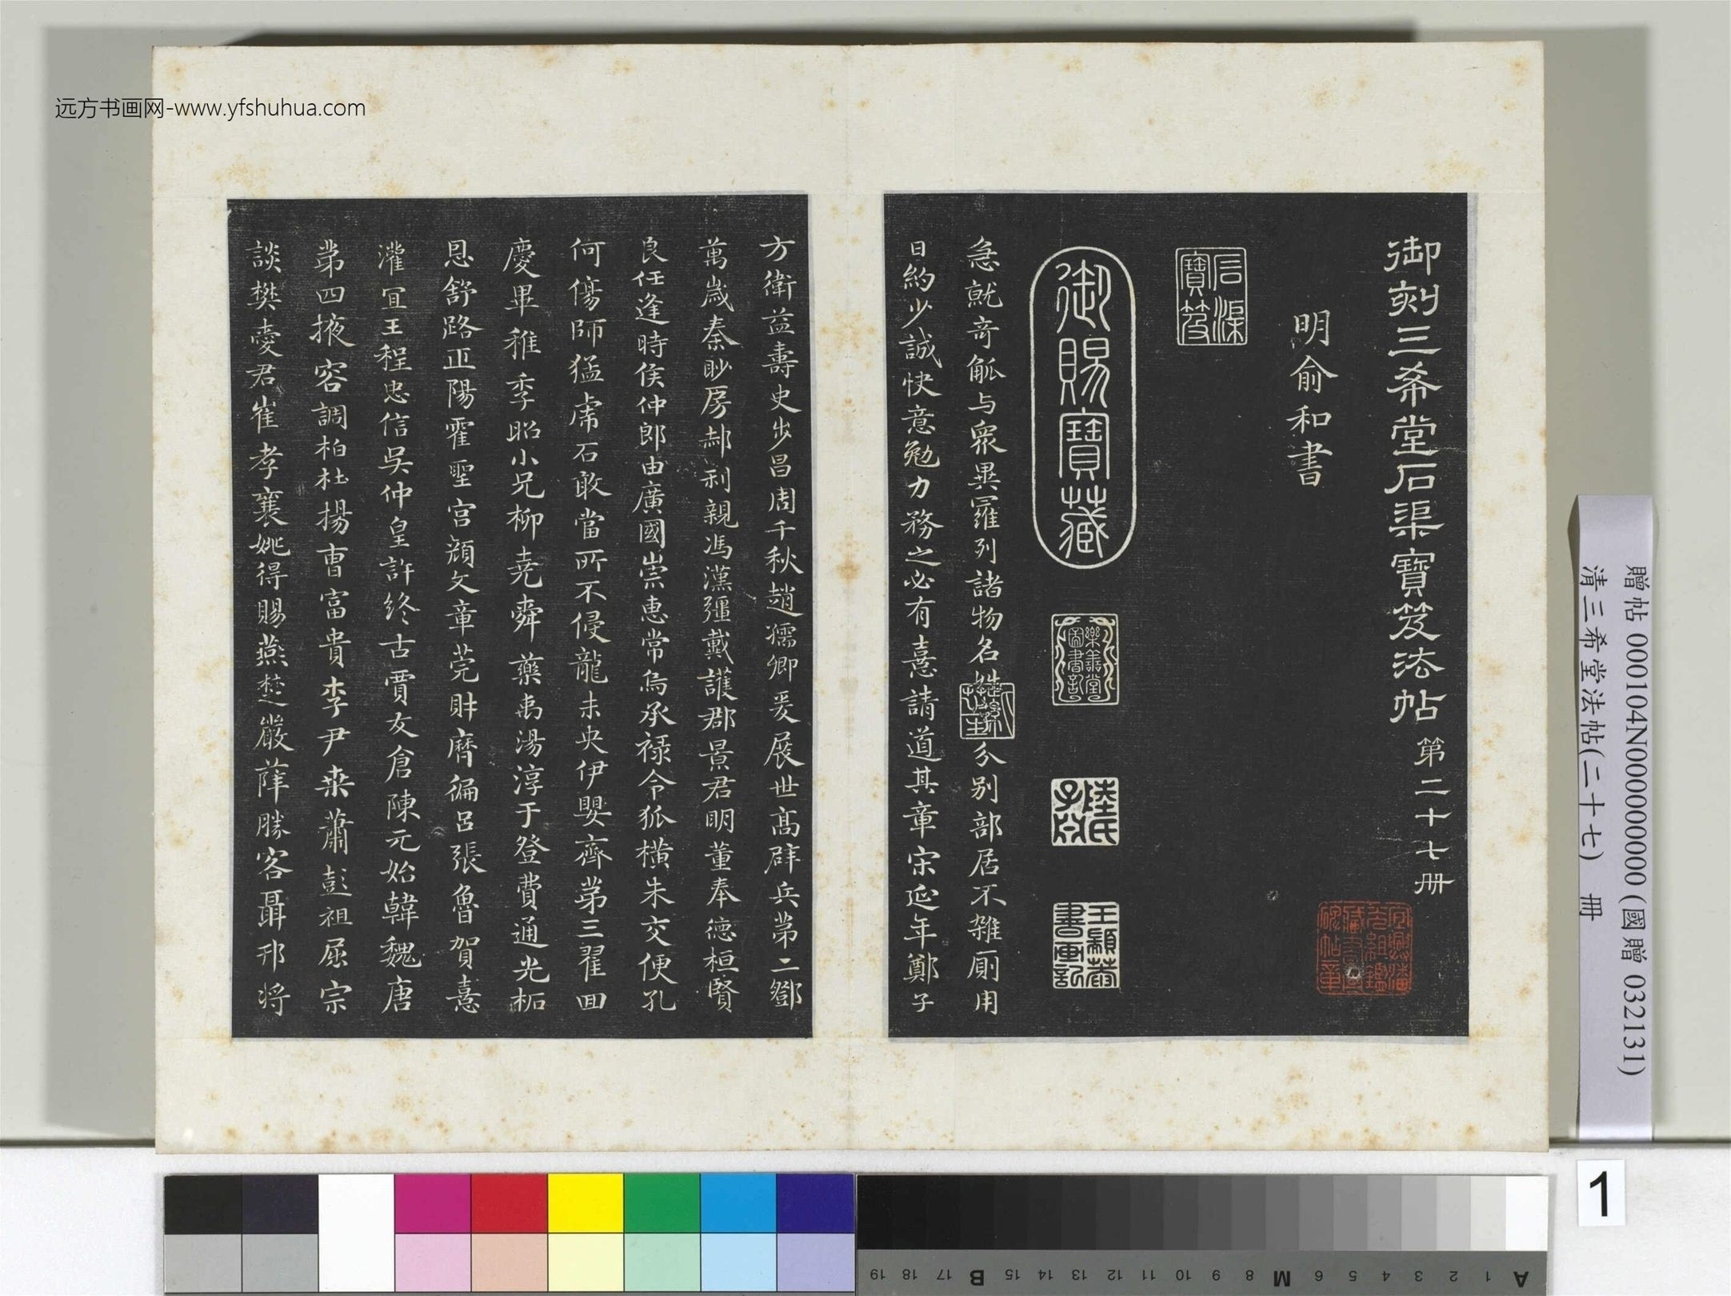 远方书画网-www.yfshuhua.com
御刻三希堂石渠寶笈法帖 第二十七冊
明俞和書
石渠寶笈
御賜寶藏
急就奇觚与衆異羅列諸物名姓字分別部居不雜厠用
日約少誠快意勉力務之必有憙請道其章宋延年鄭子
方衛益壽史步昌周千秋趙孺卿爰展世髙辟兵苐二鄧
萬歲秦眇房郝利親馮漢彊戴護郡景君明董奉德桓賢
良任逢時侯仲郎由廣國榮惠常烏承禄令狐橫朱交便孔
何傷師猛虎石敢當所不侵龍未央伊嬰齊苐三翟回
慶畢稚季昭小兄柳堯舜藥禹湯淳于登費通光柘
恩舒路正陽霍聖宫顔文章莞財曆徧呂張魯賀憙
灌宜王程忠信吳仲皇許終古賈友倉陳元始韓魏唐
苐四掖容調柏杜揚曹富貴李尹桒蕭彭祖屈宗
談樊愛君崔孝襄姚得賜燕楚嚴薛勝客聶邗将
贈帖 000104N000000000 (國贈 032131)
清三希堂法帖(二十七) 冊
1
A 1 2 3 4 5 6 M 8 9 10 11 12 13 14 15 B 17 18 19